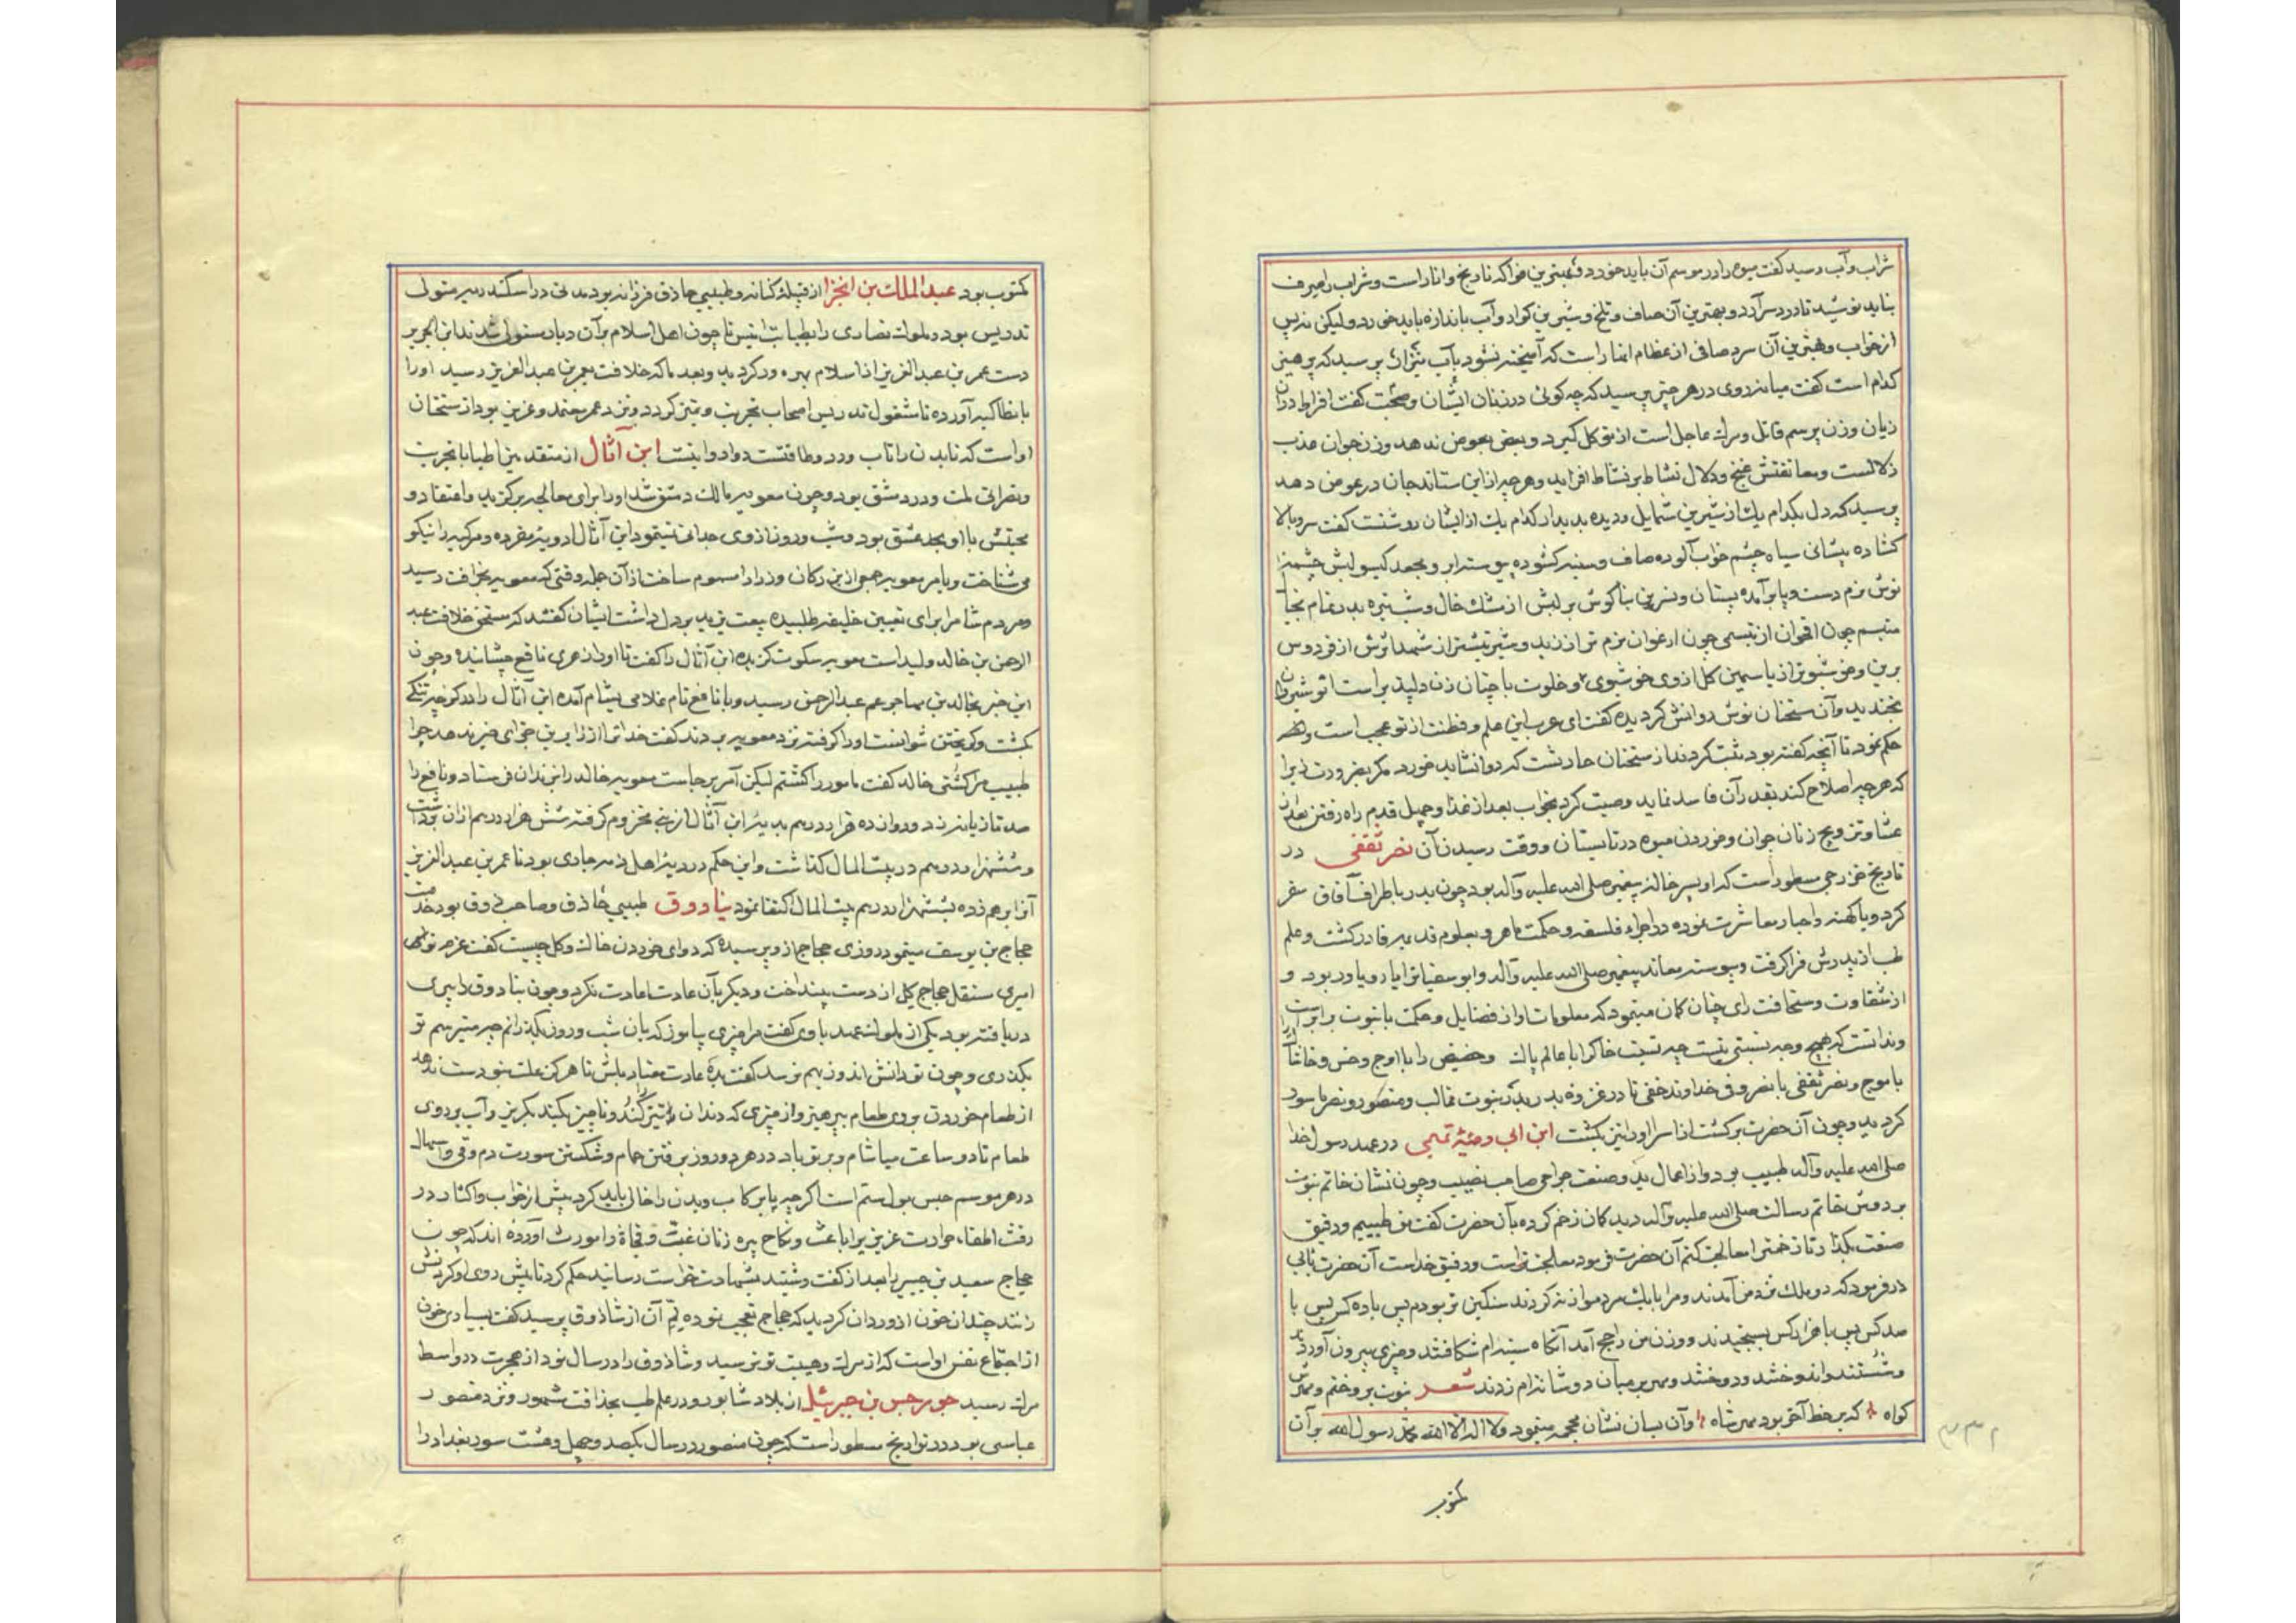 شراب و آب رسید کفت میوه را در موسم آن باید خورد و بهترین فواکه نارنج و انار است و شراب را صرف
نباید نوشید تا درد سر آرد و بهترین آن صاف و تلخ و شیرین کوار و آب باندازه باید خورد و لیکن نه پس
از خواب و بهترین آن سرد صافی از عظام انهار است که آمیخته نشود بآب پرسید که پرهیز
کدام است کفت میانه روی در هر چیز پرسید که چه کوئی در زنان ایشان و صحبت کفت افراط در آن
زیان و زن پیر سم قاتل و مرک عاجل است از تو کل کیرد و بعض بعوض ندهد و زن جوان عذب
زلالست و معانقتش غنج و دلال نشاط بر نشاط افزاید و هر چه از این ستاند جان در عوض دهد
پرسید که دل بکدام یک از شیرین شمایل و دیده بدیدار کدام یک از ایشان روشنست کفت سرو بالا
کشاده پیشانی سیاه چشم خواب آلوده صاف و سینه کشوده پیوسته ابرو مجعد کیسو لبش چشمه
نوش نرم دست و پا بر آمده پستان و نسرین بناکوش بر لبش از مشک خال و
متبسم چون اقحوان از تبسمی چون ارغوان نرم تر از زبد و شیرینتر از شهد از فردوس
برین و خوشبوتر از یاسمین کل از وی خوشبوی و خلوت با چنان زن دلپذیر است نوشیروان
بخندید و آن سخنان نوش روانش کردیده کفت ای عرب این علم و فطنت از تو عجب است و
حکم نمود تا آنچه کفته بود ثبت کردند از سخنان حارثست که دوا نشاید خورد مکر بضرورت زیرا
که هر چه اصلاح کند بقدر آن فاسد نماید وصیت کرد بخواب بعد از غذا و چهل قدم راه رفتن بعد از
عشا و تزویج زنان جوان و خوردن میوه در تابستان و وقت رسیدن آن نضر ثقفی در
تاریخ خزرجی مسطور است که او پسر خاله پیغمبر صلی الله علیه و آله بود چون پدر باطراف آفاق سفر
کرد و با کهنه و احبار معاشرت نموده در اجزاء فلسفه و حکمت ماهر و بعلوم قدیمه قادر کشت و علم
طب از پدرش فرا کرفت و پیوسته معاند پیغمبر صلی الله علیه و آله و ابوسفیانرا یار و یاور بود و
از شقاوت و سخافت رای چنان کمان مینمود که معلومات او از فضایل و حکمت با نبوت برابر است
و ندانست که هیچ وجه نسبتی نیست چه نسبت خاکرا با عالم پاک و حضیض را با اوج و خس و خاشاک را
با موج و نضر ثقفی با نصر و فر خداوند خفی تا در غزوه بدر بدر نبوت غالب و منصور و نضر ماسور
کردید و چون آن حضرت برکشت از اسرا او را نیز بکشت ابن ابی رمثه تمیمی در عهد رسول خدا
صلی الله علیه و آله طبیب بود و از اعمال ید و صنعت جراحی صاحب نصیب و چون نشان خاتم نبوت
بر دوش خاتم رسالت صلی الله علیه و آله دید کمان زخم کرده بآن حضرت کفت من طبیبم و رفیق
صنعت بکذار تا زخمترا معالجت کنم آن حضرت فرمود معالجت تراست و رفیق خداست آن حضرت
در فرمود که دو ملک نزد من آمدند و مرا با یک مرد موازنه کردند سنکین تر بودم پس با ده کس پس با
صد کس پس با هزار کس بسنجیدند و وزن من راجح آمد آنکاه سینه ام شکافتند و چیزی بیرون آوردند
و شستند و انداختند و دوختند و مهر بر میان دو شانه ام زدند شعر نبوت بر و ختم و مهرش
کواه که بر خط آخر بود مهر شاه و آن بسان نشان محجمه مینمود و لا اله الا الله محمد رسول الله بر آن
مکتوب
مکتوب بود عبد الملک بن ابجر از قبیله کنانه و طبیبی حاذق فرزانه بود مدتی در اسکندریه متولی
تدریس بود و ملوک نصاری را بطبابت انیس تا چون اهل اسلام بر آن دیار مستولی شدند ابن ابجر بر
دست عمر بن عبد العزیز از اسلام بهره ور کردید و بعد ما که خلافت بعمر بن عبد العزیز رسید او را
بانطاکیه آورده تا مشغول تدریس اصحاب تجربت و تمیز کردد و نزد عمر معتمد و عزیز بود از سخنان
او است که تا بدن را تاب درد و طاقتست دوا روا نیست ابن آثال از متقدمین اطبا با تجربت
و نصرانی ملت و در دمشق بود و چون معویه مالک دمشق شد او را برای معالجه برکزید و اعتقاد و
محبتش با او بحد عشق بود و شب و روز از وی جدائی نمینمود ابن آثال ادویه مفرده و مرکبه را نیکو
می شناخت و بامر معویه جمعی از ارکان و وزرا را مسموم ساخت از آن جمله وقتی که معویه بخرافت رسید
و مردم شام را برای تعیین خلیفه طلبیده بیعت یزید بر دل داشت ایشان کفتند که مستحق خلافت عبد
الرحمن بن خالد ولید است معویه سکوت کزیده ابن آثال را کفت تا او را زهری ناقع چشانیده و چون
این خبر بخالد بن مهاجر عم عبد الرحمن رسید و با نافع نام غلامی بشام آمده ابن آثال را در کوچه تنکی
بکشت و کریختن نتوانست او را کرفته نزد معویه بردند کفت خدا ترا از زایرین جزای خیر ندهد چرا
طبیب مرا کشتی خالد کفت مامور را کشتم لیکن آمر برجاست معویه خالد را بزندان فرستاد و نافع را
صد تازیانه زد و دوازده هزار درهم بدیه ابن آثال از بنی مخزوم کرفته شش هزار درهم از آن برداشت
و ششهزار درهم در بیت المال کذاشت و این حکم در دیه اهل ذمه جاری بود تا عمر بن عبد العزیز
آنرا برهم زده بششهزار درهم بیت المال اکتفا نمود بنا دوق طبیبی حاذق و صاحب ذوق بود خدمت
حجاج بن یوسف مینمود روزی حجاج از وی پرسیده که دوای خوردن خاک و کل چیست کفت عزم تو ای
امیر مستقل حجاج کل از دست بینداخت و دیکر بآن عادت اعادت نکرد و چون بنا دوق را پیری
دریافته بود یکی از ملوک عهد با وی کفت مرا چیزی بیاموز که بآن شب و روز بکذرانم چه میترسم تو
بکذری و چون تو دانش اندوز بهم نرسد کفت بده عادت معتاد باش تا هرکز علت بتو دست ندهد
از طعام خوردن بر روی طعام بپرهیز و از چیزی که دندان را تیز کند و ناچیز بکند بکریز و آب بر روی
طعام تا دو ساعت میاشام و بر تو باد در هر دو روز برفتن حمام و شکستن سورت دم و قی و اسهال
در هر موسم حبس بول ستم است اکر چه پا بر کاب و بدن را خالی باید کرد پیش از خواب و اکثار در
رفث اطفاء حرارت عزیزیرا باعث و نکاح پیره زنان غبّ و فجاة را مورث آورده اند که چون
حجاج سعید بن جبیر را بعد از کفت و شنید بشهادت رسانید حکم کرد تا پیش روی او کردنش
زدند چندان خون از او روان کردید که حجاج تعجب نموده لمّ آن از شاذوق پرسید کفت بسیاری خون
از اجتماع نفس او است که از مرک و هیبت تو نترسید و شاذوق را در سال نود از هجرت در واسط
مرک رسید جورجس بن جبرئیل از بلاد شابور و در علم طب بحذاقت مشهور و نزد منصور
عباسی بود در تواریخ مسطور است که چون منصور در سال یکصد و چهل و هشت سور بغداد را